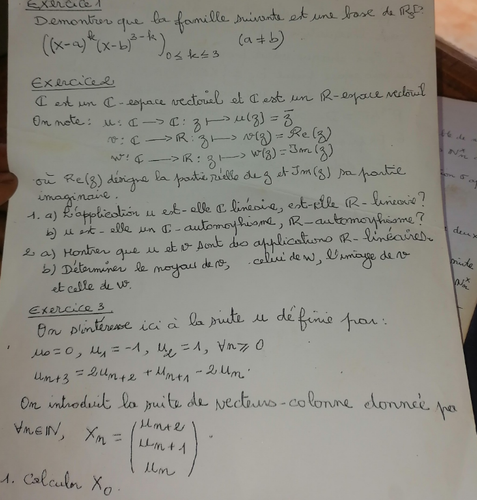 Exercice 1
Demontrer que la famille suivante est une base de
((x-a)^k (x-b)^{3-k})_{0≤k≤3} (a≠b)
Exercice 2
ℂ est un ℂ-espace vectoriel et ℂ est un ℝ-espace vectoriel
On note : u: ℂ → ℂ : z ↦ u(z) = z̄
v: ℂ → ℝ : z ↦ v(z) = Re(z)
w: ℂ → ℝ : z ↦ w(z) = Im(z)
où Re(z) désigne la partie réelle de z et Im(z) sa partie
imaginaire.
1. a) L'application u est-elle ℂ linéaire, est-elle ℝ-linéaire?
b) u est-elle un ℂ-automorphisme, ℝ-automorphisme?
2. a) Montrer que u et v sont des applications ℝ-linéaires.
b) Déterminer le noyau de v, celui de w, l'image de v
et celle de w.
Exercice 3.
On s'intéresse ici à la suite u définie par :
u₀ = 0, u₁ = -1, u₂ = 1, ∀n ≥ 0
u_{n+3} = 2u_{n+2} + u_{n+1} - 2u_n.
On introduit la suite de vecteurs-colonne donnée par
∀n∈ℕ, X_n = (u_{n+2} u_{n+1} u_n).
1. Calculer X₀.